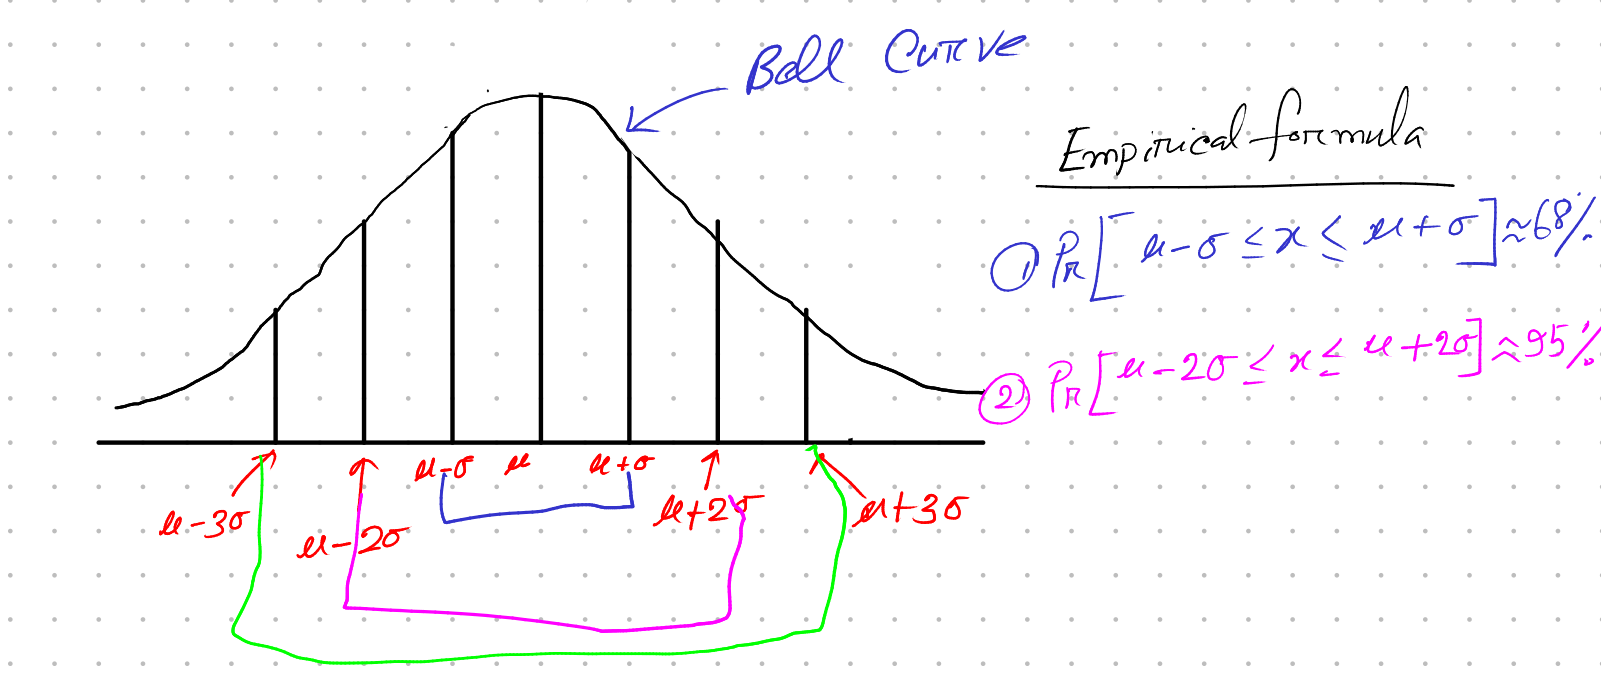 Bell Curve
Empirical formula
① Pr[μ-σ ≤ x ≤ μ+σ] ≈ 68%
② Pr[μ-2σ ≤ x ≤ μ+2σ] ≈ 95%
μ-σ μ μ+σ
μ-3σ μ-2σ μ+2σ μ+3σ